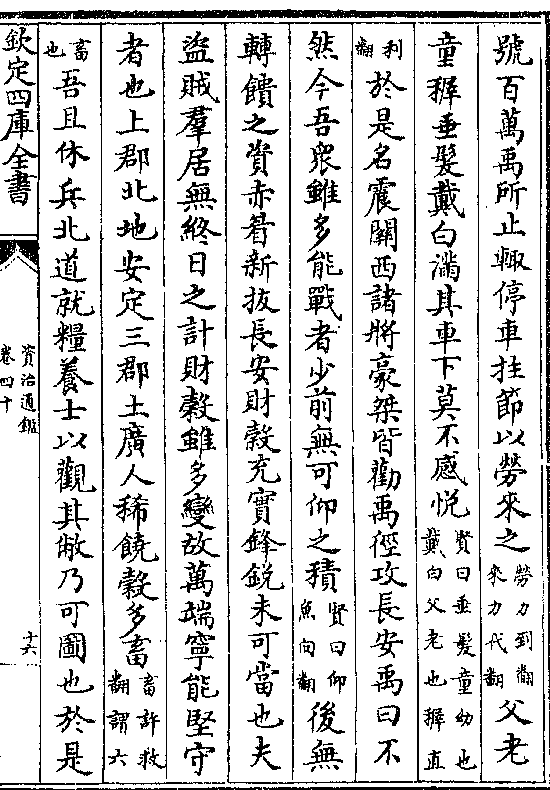 號百萬禹所止輙停車拄節以勞來之勞力到翻來力代翻父老
童穉垂髪戴白滿其車下莫不感悦賢曰垂髪童幼也戴白父老也穉直
利翻於是名震關西諸將豪桀皆勸禹徑攻長安禹曰不
然今吾衆雖多能戰者少前無可仰之積賢曰仰魚向翻後無
轉饋之資赤眉新拔長安財穀充實鋒鋭未可當也夫
盜賊羣居無終日之計財穀雖多變故萬端寧能堅守
者也上郡北地安定三郡土廣人稀饒穀多畜畜許救翻謂六
畜也吾且休兵北道就糧養士以觀其敝乃可圖也於是
欽定四庫全書
資治通鑑
卷四十
十六